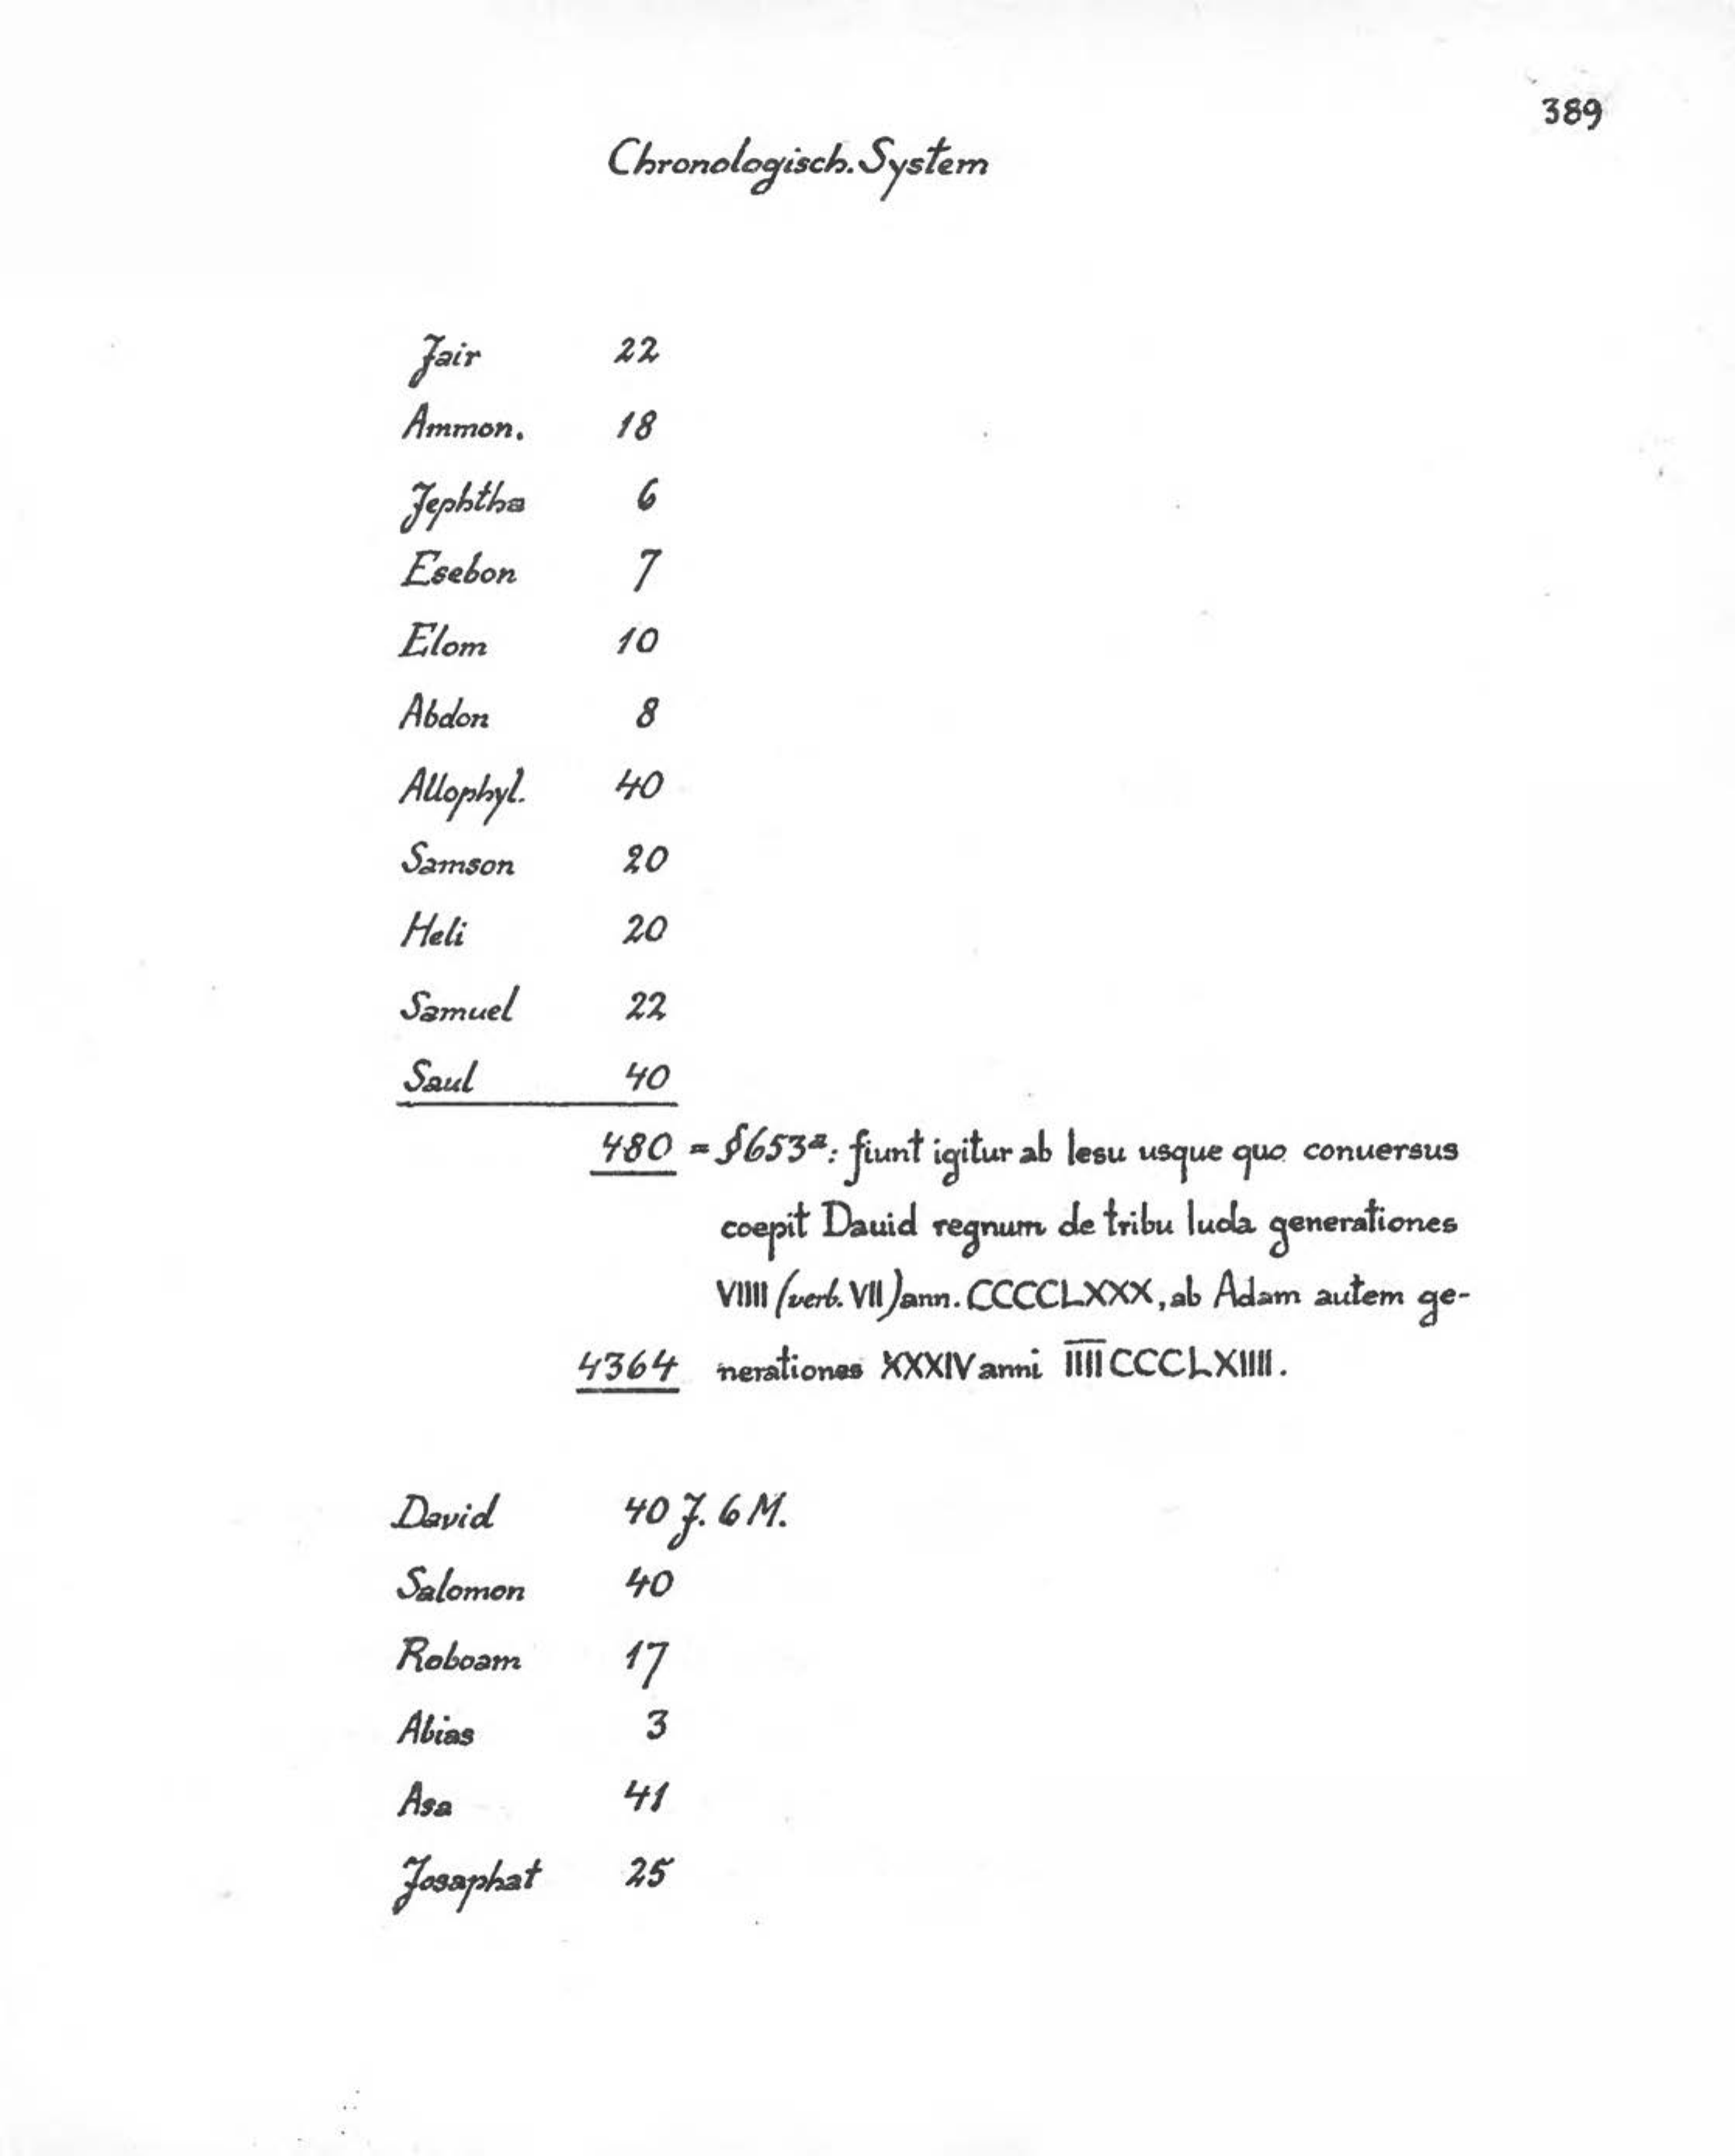 389
Chronologisch. System
Jair 22
Ammon. 18
Jephtha 6
Esebon 7
Elom 10
Abdon 8
Allophyl. 40
Samson 20
Heli 20
Samuel 22
Saul 40
480 = §653a: fiunt igitur ab Iesu usque quo conuersus
coepit Dauid regnum de tribu Iuda generationes
VIIII (verb. VII) ann. CCCCLXXX, ab Adam autem ge-
4364 nerationes XXXIV anni I̅I̅I̅I̅CCCLXIIII.
David 40 J. 6 M.
Salomon 40
Roboam 17
Abias 3
Asa 41
Josaphat 25